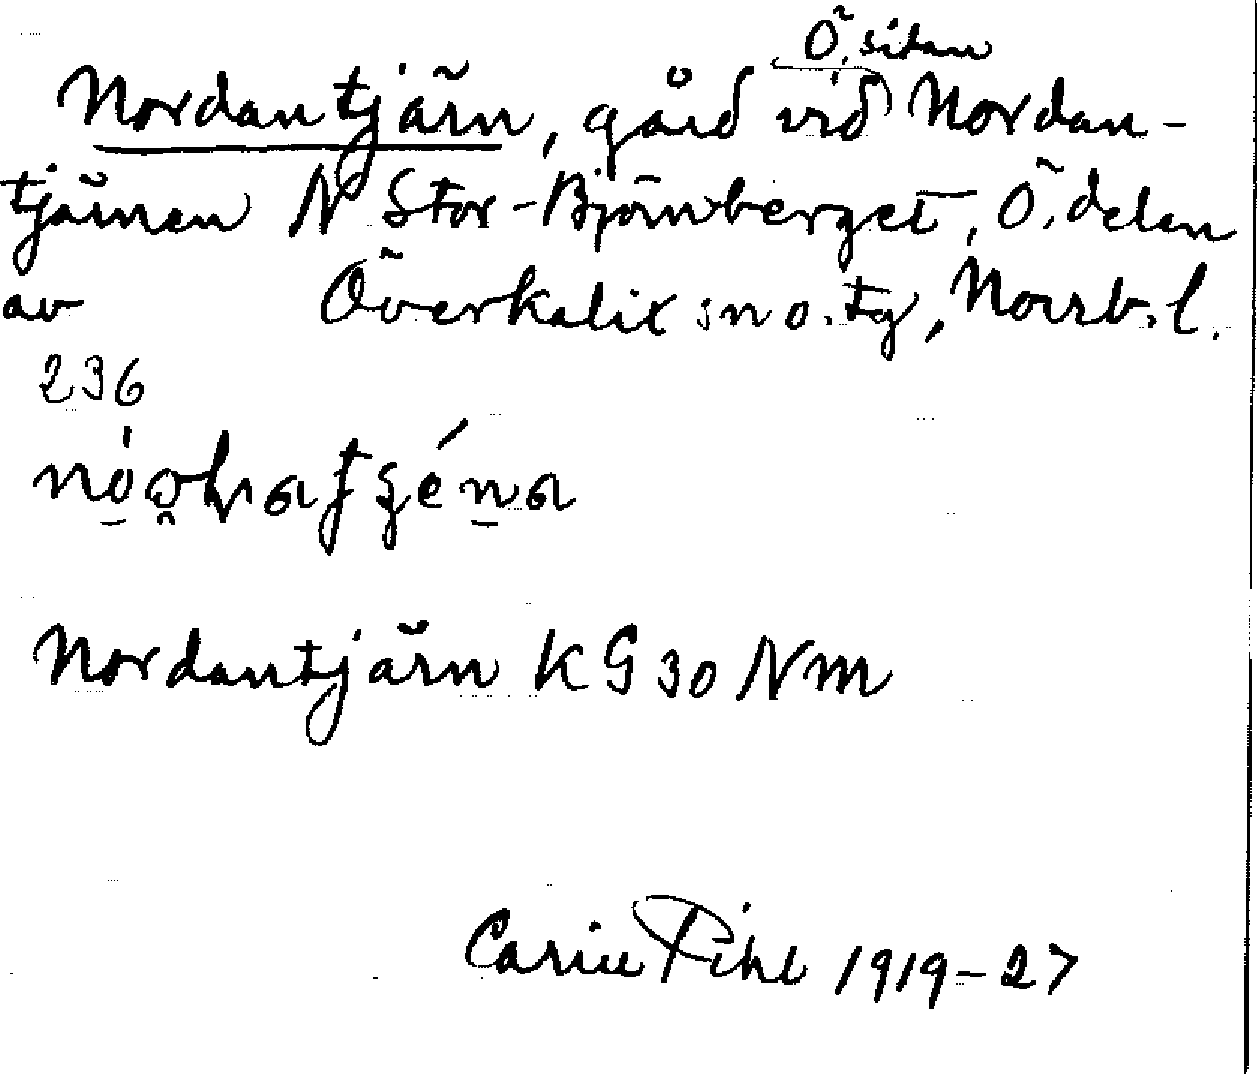 Ö. sidan
Nordantjärn, gård vid Nordan-
tjärnen N Stor-Björnberget, Ö. delen
av Överkalix sn o. tg, Norrb. l.
236
Nordantjärn KG 30 NM
Carin Pihl 1919-27